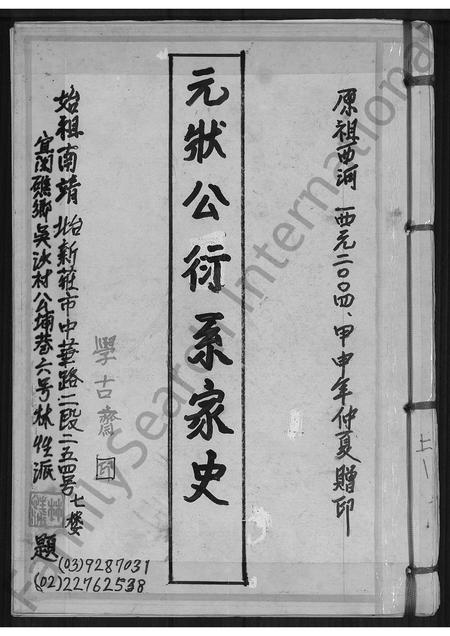 原祖西河 西元二〇〇四、甲申年仲夏贈印
元狀公衍系家史
學古齋 印
始祖南靖 北台新莊市中華路二段二五四号七樓
宜闽礁鄉吳沙村公埔巷六号林性派
題
(03)9287031
(02)22762538
上
FamilySearch International